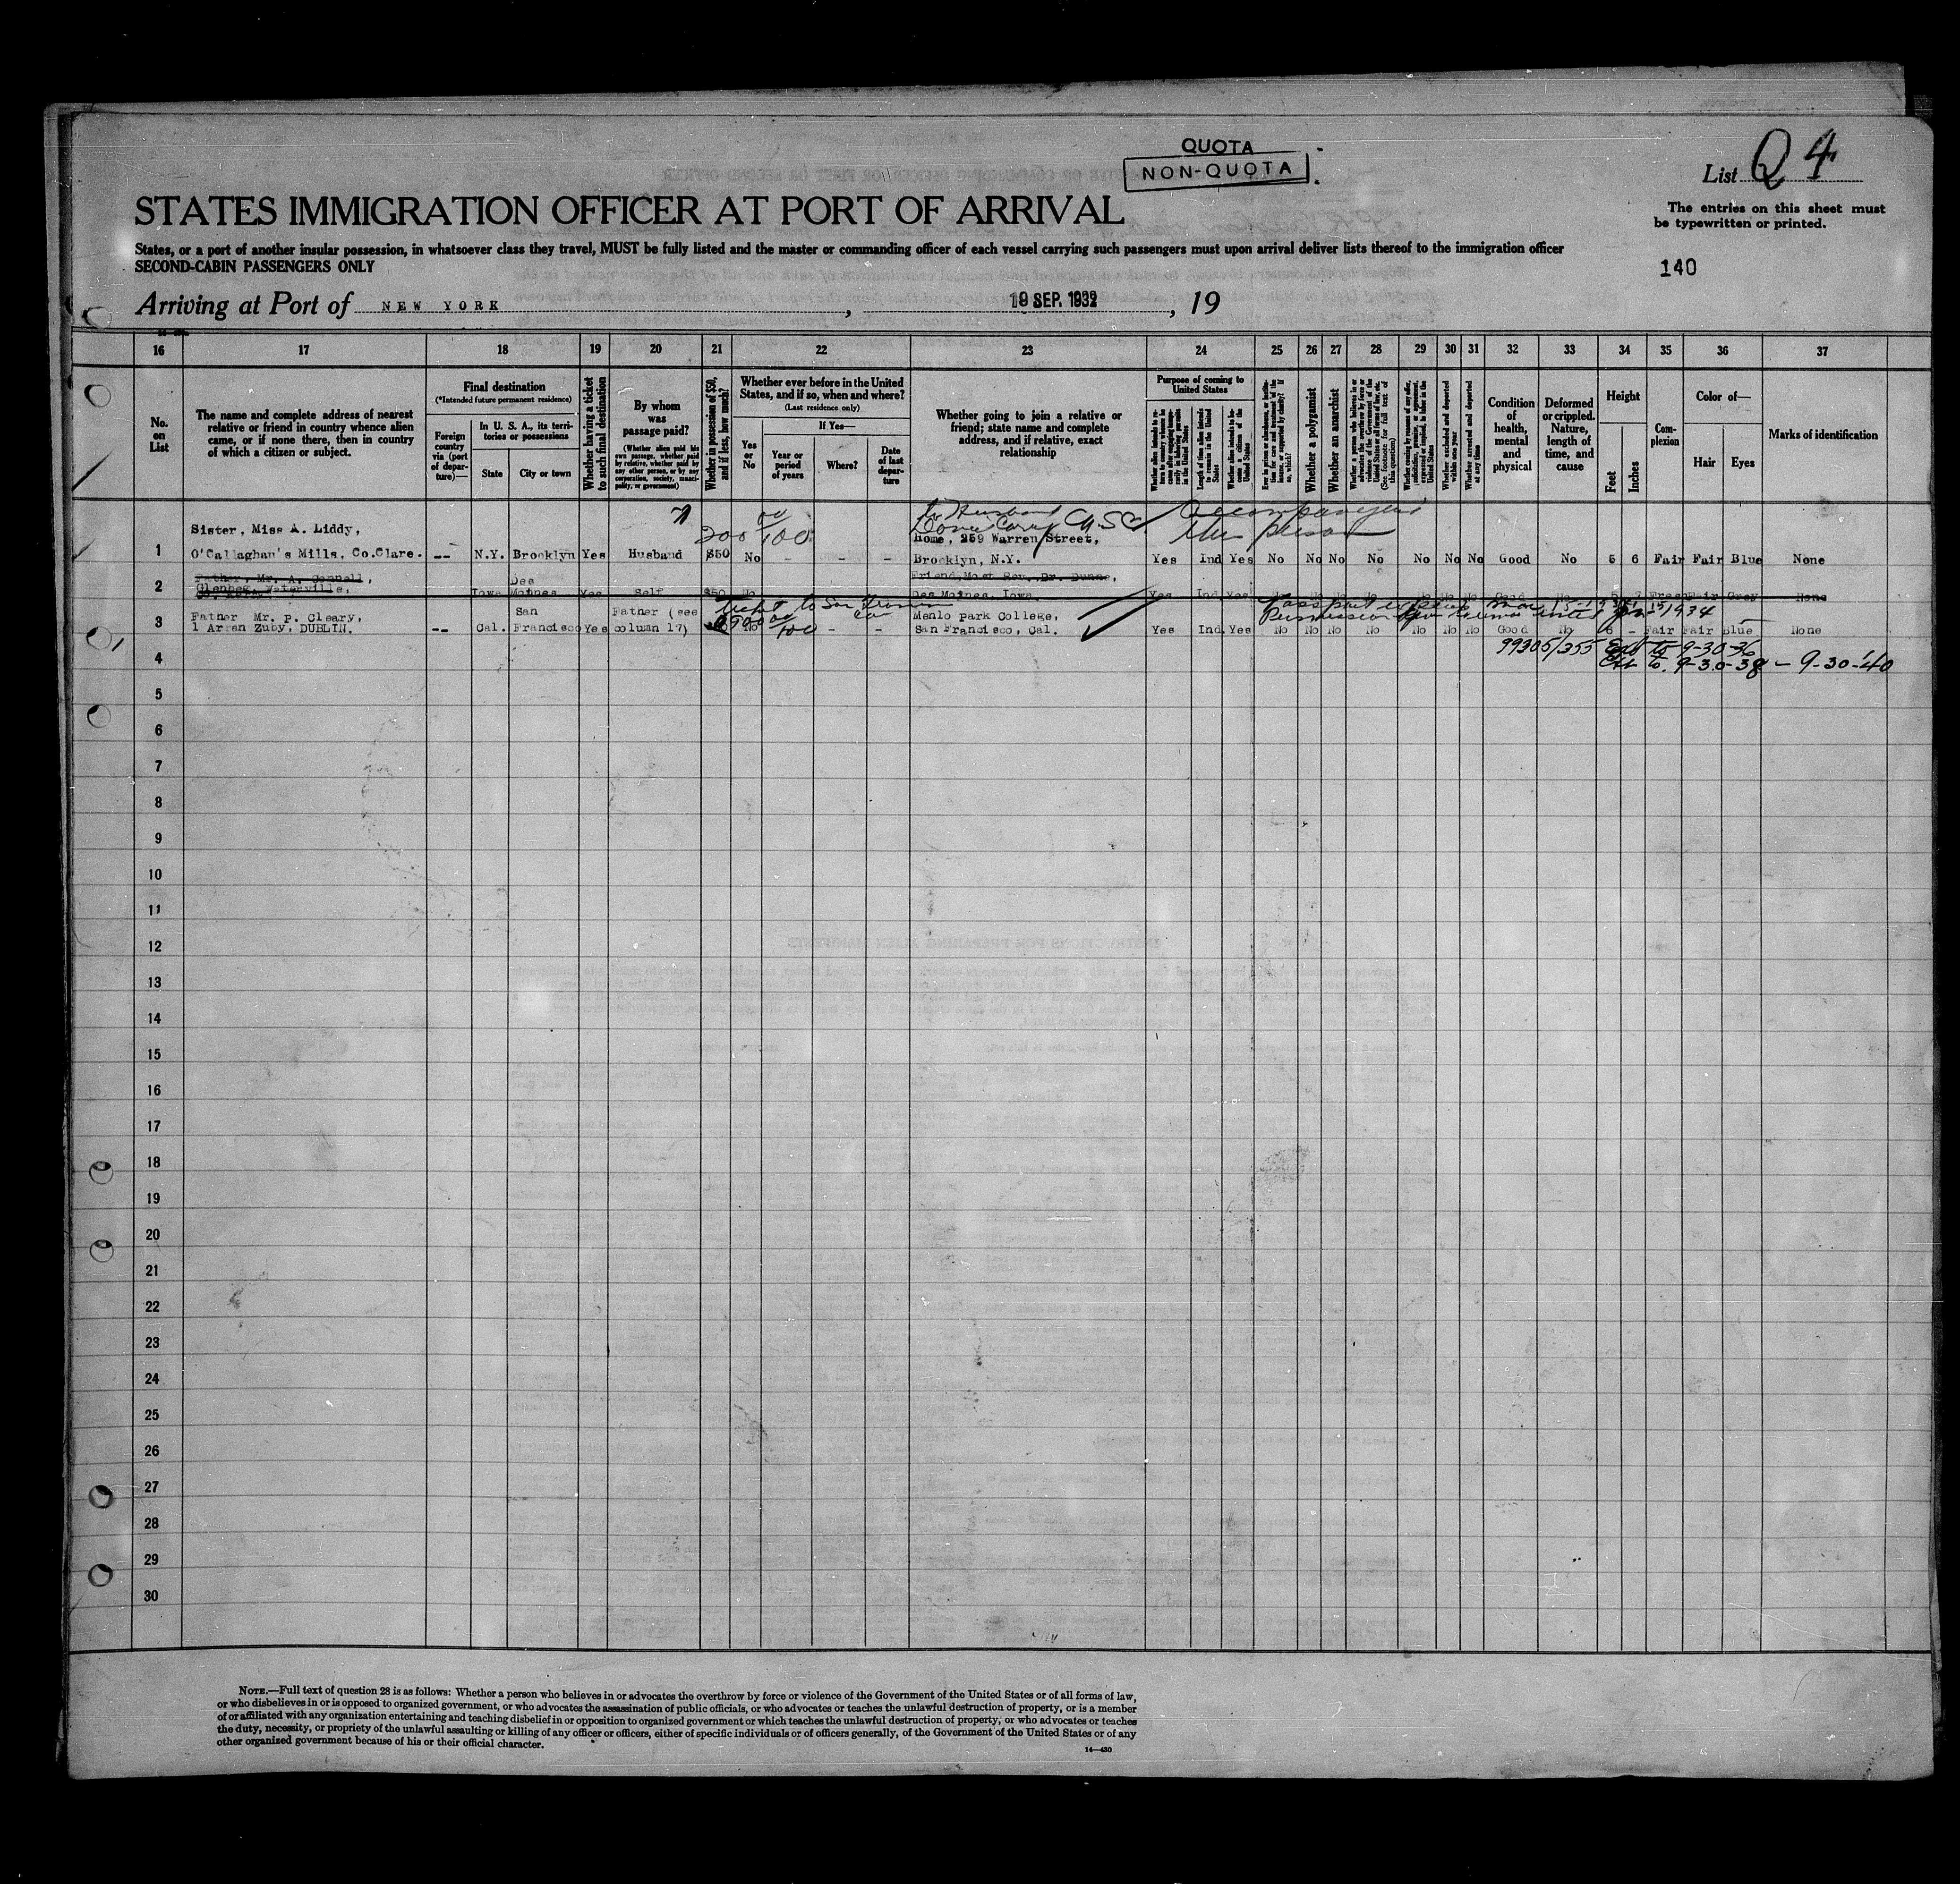 QUOTA
NON-QUOTA
List Q 4
STATES IMMIGRATION OFFICER AT PORT OF ARRIVAL
The entries on this sheet must
be typewritten or printed.
States, or a port of another insular possession, in whatsoever class they travel, MUST be fully listed and the master or commanding officer of each vessel carrying such passengers must upon arrival deliver lists thereof to the immigration officer
SECOND-CABIN PASSENGERS ONLY
140
Arriving at Port of NEW YORK, 19 SEP. 1932, 19
16 17 18 19 20 21 22 23 24 25 26 27 28 29 30 31 32 33 34 35 36 37
No.
on
List
The name and complete address of nearest
relative or friend in country whence alien
came, or if none there, then in country
of which a citizen or subject.
Final destination
(*Intended future permanent residence)
Foreign
country
via (port
of depar-
ture)—
In U. S. A., its terri-
tories or possessions
State
City or town
Whether having a ticket
to such final destination
By whom
was
passage paid?
(Whether alien paid his
own passage, whether paid
by relative, whether paid by
any other person, or by any
corporation, society, munici-
pality, or government)
Whether in possession of $50,
and if less, how much?
Whether ever before in the United
States, and if so, when and where?
(Last residence only)
Yes
or
No
If Yes—
Year or
period
of years
Where?
Date
of last
depar-
ture
Whether going to join a relative or
friend; state name and complete
address, and if relative, exact
relationship
Purpose of coming to
United States
Length of time alien intends
to remain in the United
States
Whether alien intends to be-
come a citizen of the
United States
Whether a polygamist
Whether an anarchist
Whether excluded and deported
within one year
Whether arrested and deported
at any time
Condition
of
health,
mental
and
physical
Deformed
or crippled.
Nature,
length of
time, and
cause
Height
Feet
Inches
Com-
plexion
Color of—
Hair
Eyes
Marks of identification
Sister, Miss A. Liddy,
200 00/100
to Husband
Accompanying
Home, 259 Warren Street,
1 O'Callaghan's Mills, Co.Clare. -- N.Y. Brooklyn Yes Husband $50 No - - - Brooklyn, N.Y. Yes Ind Yes No No No No No No No Good No 5 6 Fair Fair Blue None
Father, Mr. A. Connell, Des Friend, Most Rev. Dr. Dunne,
2 Waterville, Iowa Moines Yes Self $50 No Des Moines, Iowa Yes Ind Yes No No No No No No No Good No 5 7 Fresh Fair Grey None
Ticket to San Francisco Cal
Passport expires Mar
Father Mr. P. Cleary, San Father (see Menlo Park College,
3 1 Arran Zuby, DUBLIN. -- Cal. Francisco Yes column 17) No - - San Francisco, Cal. Yes Ind Yes No No No No No No No Good No 6 - Fair Fair Blue None
99305/355 Ext to 9-30-36
4 Ext to 9-30-38 - 9-30-40
5
6
7
8
9
10
11
12
13
14
15
16
17
18
19
20
21
22
23
24
25
26
27
28
29
30
NOTE.—Full text of question 28 is as follows: Whether a person who believes in or advocates the overthrow by force or violence of the Government of the United States or of all forms of law,
or who disbelieves in or is opposed to organized government, or who advocates the assassination of public officials, or who advocates or teaches the unlawful destruction of property, or is a member
of or affiliated with any organization entertaining and teaching disbelief in or opposition to organized government or which teaches the unlawful destruction of property, or who advocates or teaches
the duty, necessity, or propriety of the unlawful assaulting or killing of any officer or officers, either of specific individuals or of officers generally, of the Government of the United States or of any
other organized government because of his or their official character.
14—430